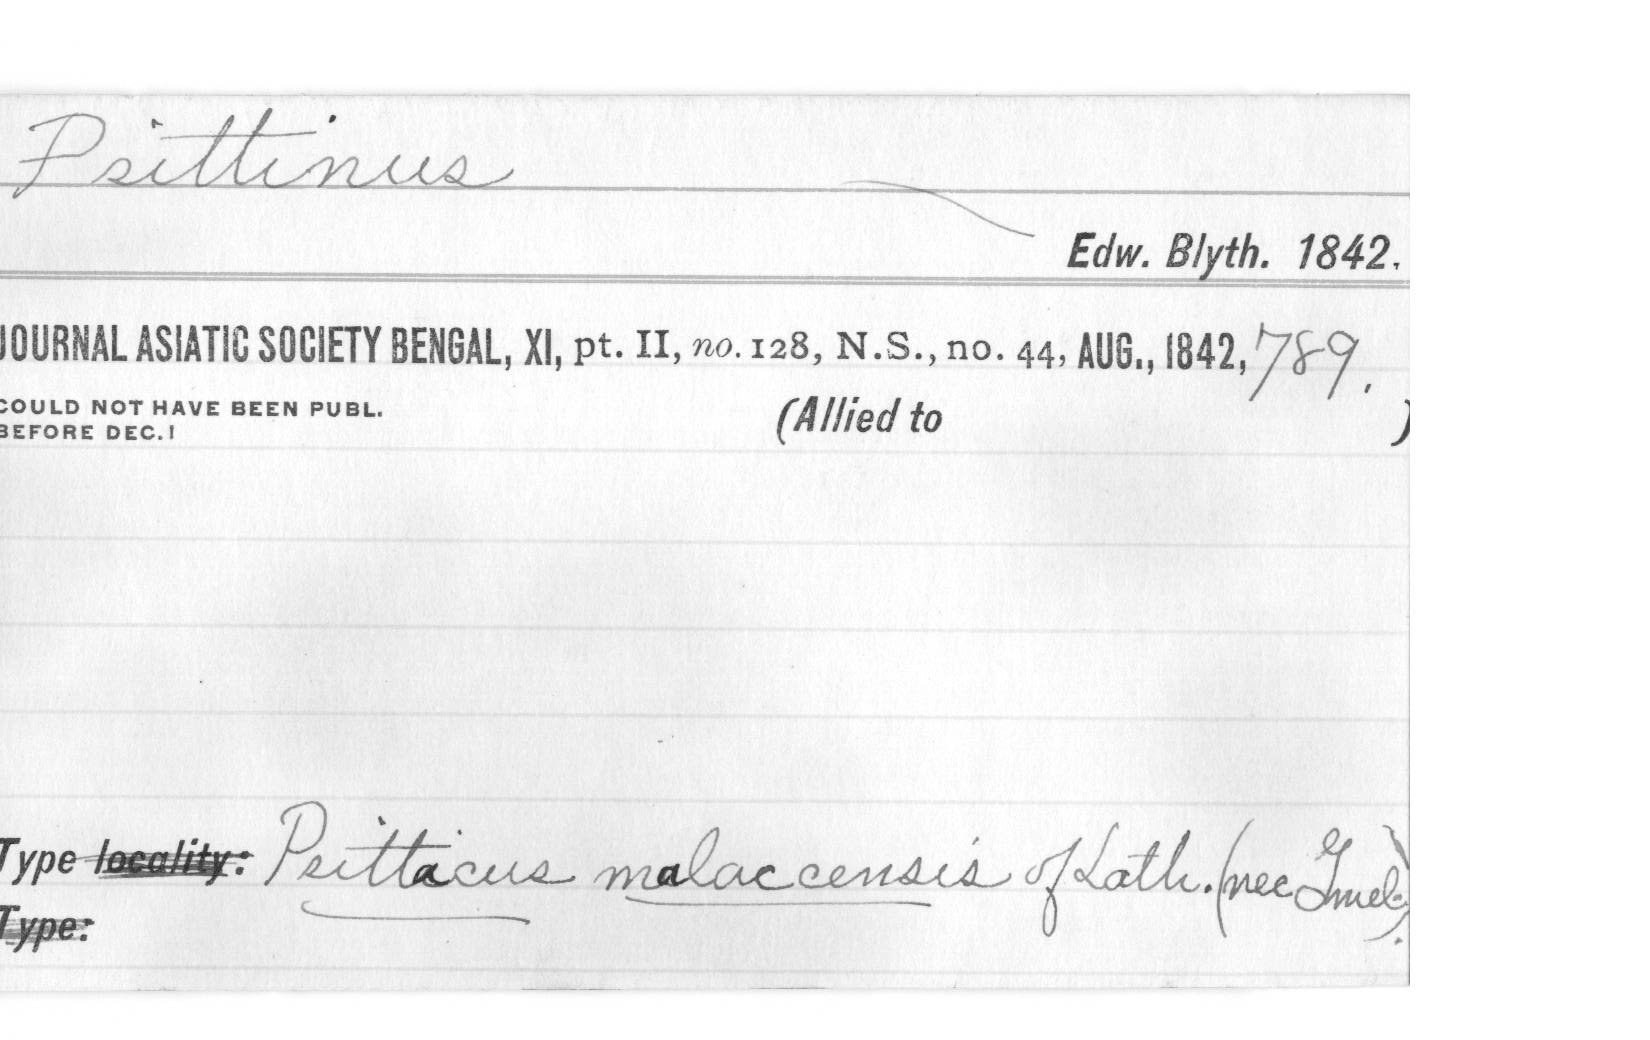 Psittinus
Edw. Blyth. 1842.
JOURNAL ASIATIC SOCIETY BENGAL, XI, pt. II, no. 128, N.S., no. 44, AUG., 1842, 789.
COULD NOT HAVE BEEN PUBL.
BEFORE DEC.!
(Allied to )
Type locality: Psittacus malaccensis of Lath. (nec Gmel.).
Type: